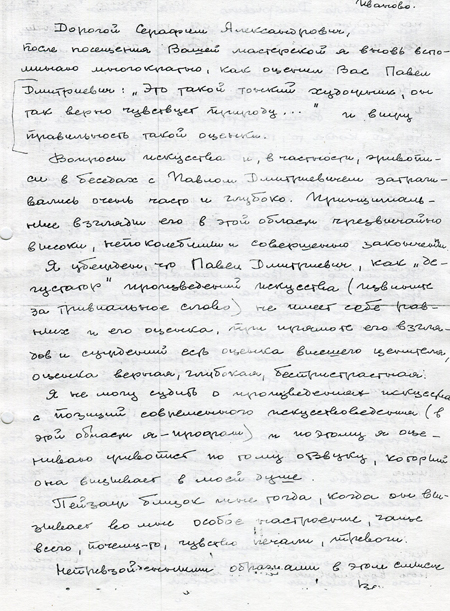 Иваново.
Дорогой Серафим Александрович,
после посещения Вашей мастерской я вновь вспо-
минаю многократно, как оценил Вас Павел
Дмитриевич: „Это такой тонкий художник, он
так верно чувствует природу..." и вижу
правильность такой оценки.
Вопросы искусства и, в частности, живопи-
си в беседах с Павлом Дмитриевичем затраги-
вались очень часто и глубоко. Принципиаль-
ные взгляды его в этой области чрезвычайно
высоки, непоколебимы и совершенно закончены.
Я убежден, что Павел Дмитриевич, как „де-
густатор" произведений искусства (извините
за тривиальное слово) не имеет себе рав-
ных и его оценка, при прямоте его взгля-
дов и суждений есть оценка высшего ценителя,
оценка верная, глубокая, беспристрастная.
Я не могу судить о произведениях искусства
с позиций современного искусствоведения (в
этой области я-профан) и поэтому я оце-
ниваю живопись по тому отзвуку, который
она вызывает в моей душе.
Пейзаж близок мне тогда, когда он вы-
зывает во мне особое настроение, чаще
всего, почему-то, чувство печали, тревоги.
Непревзойденными образцами в этом смысле